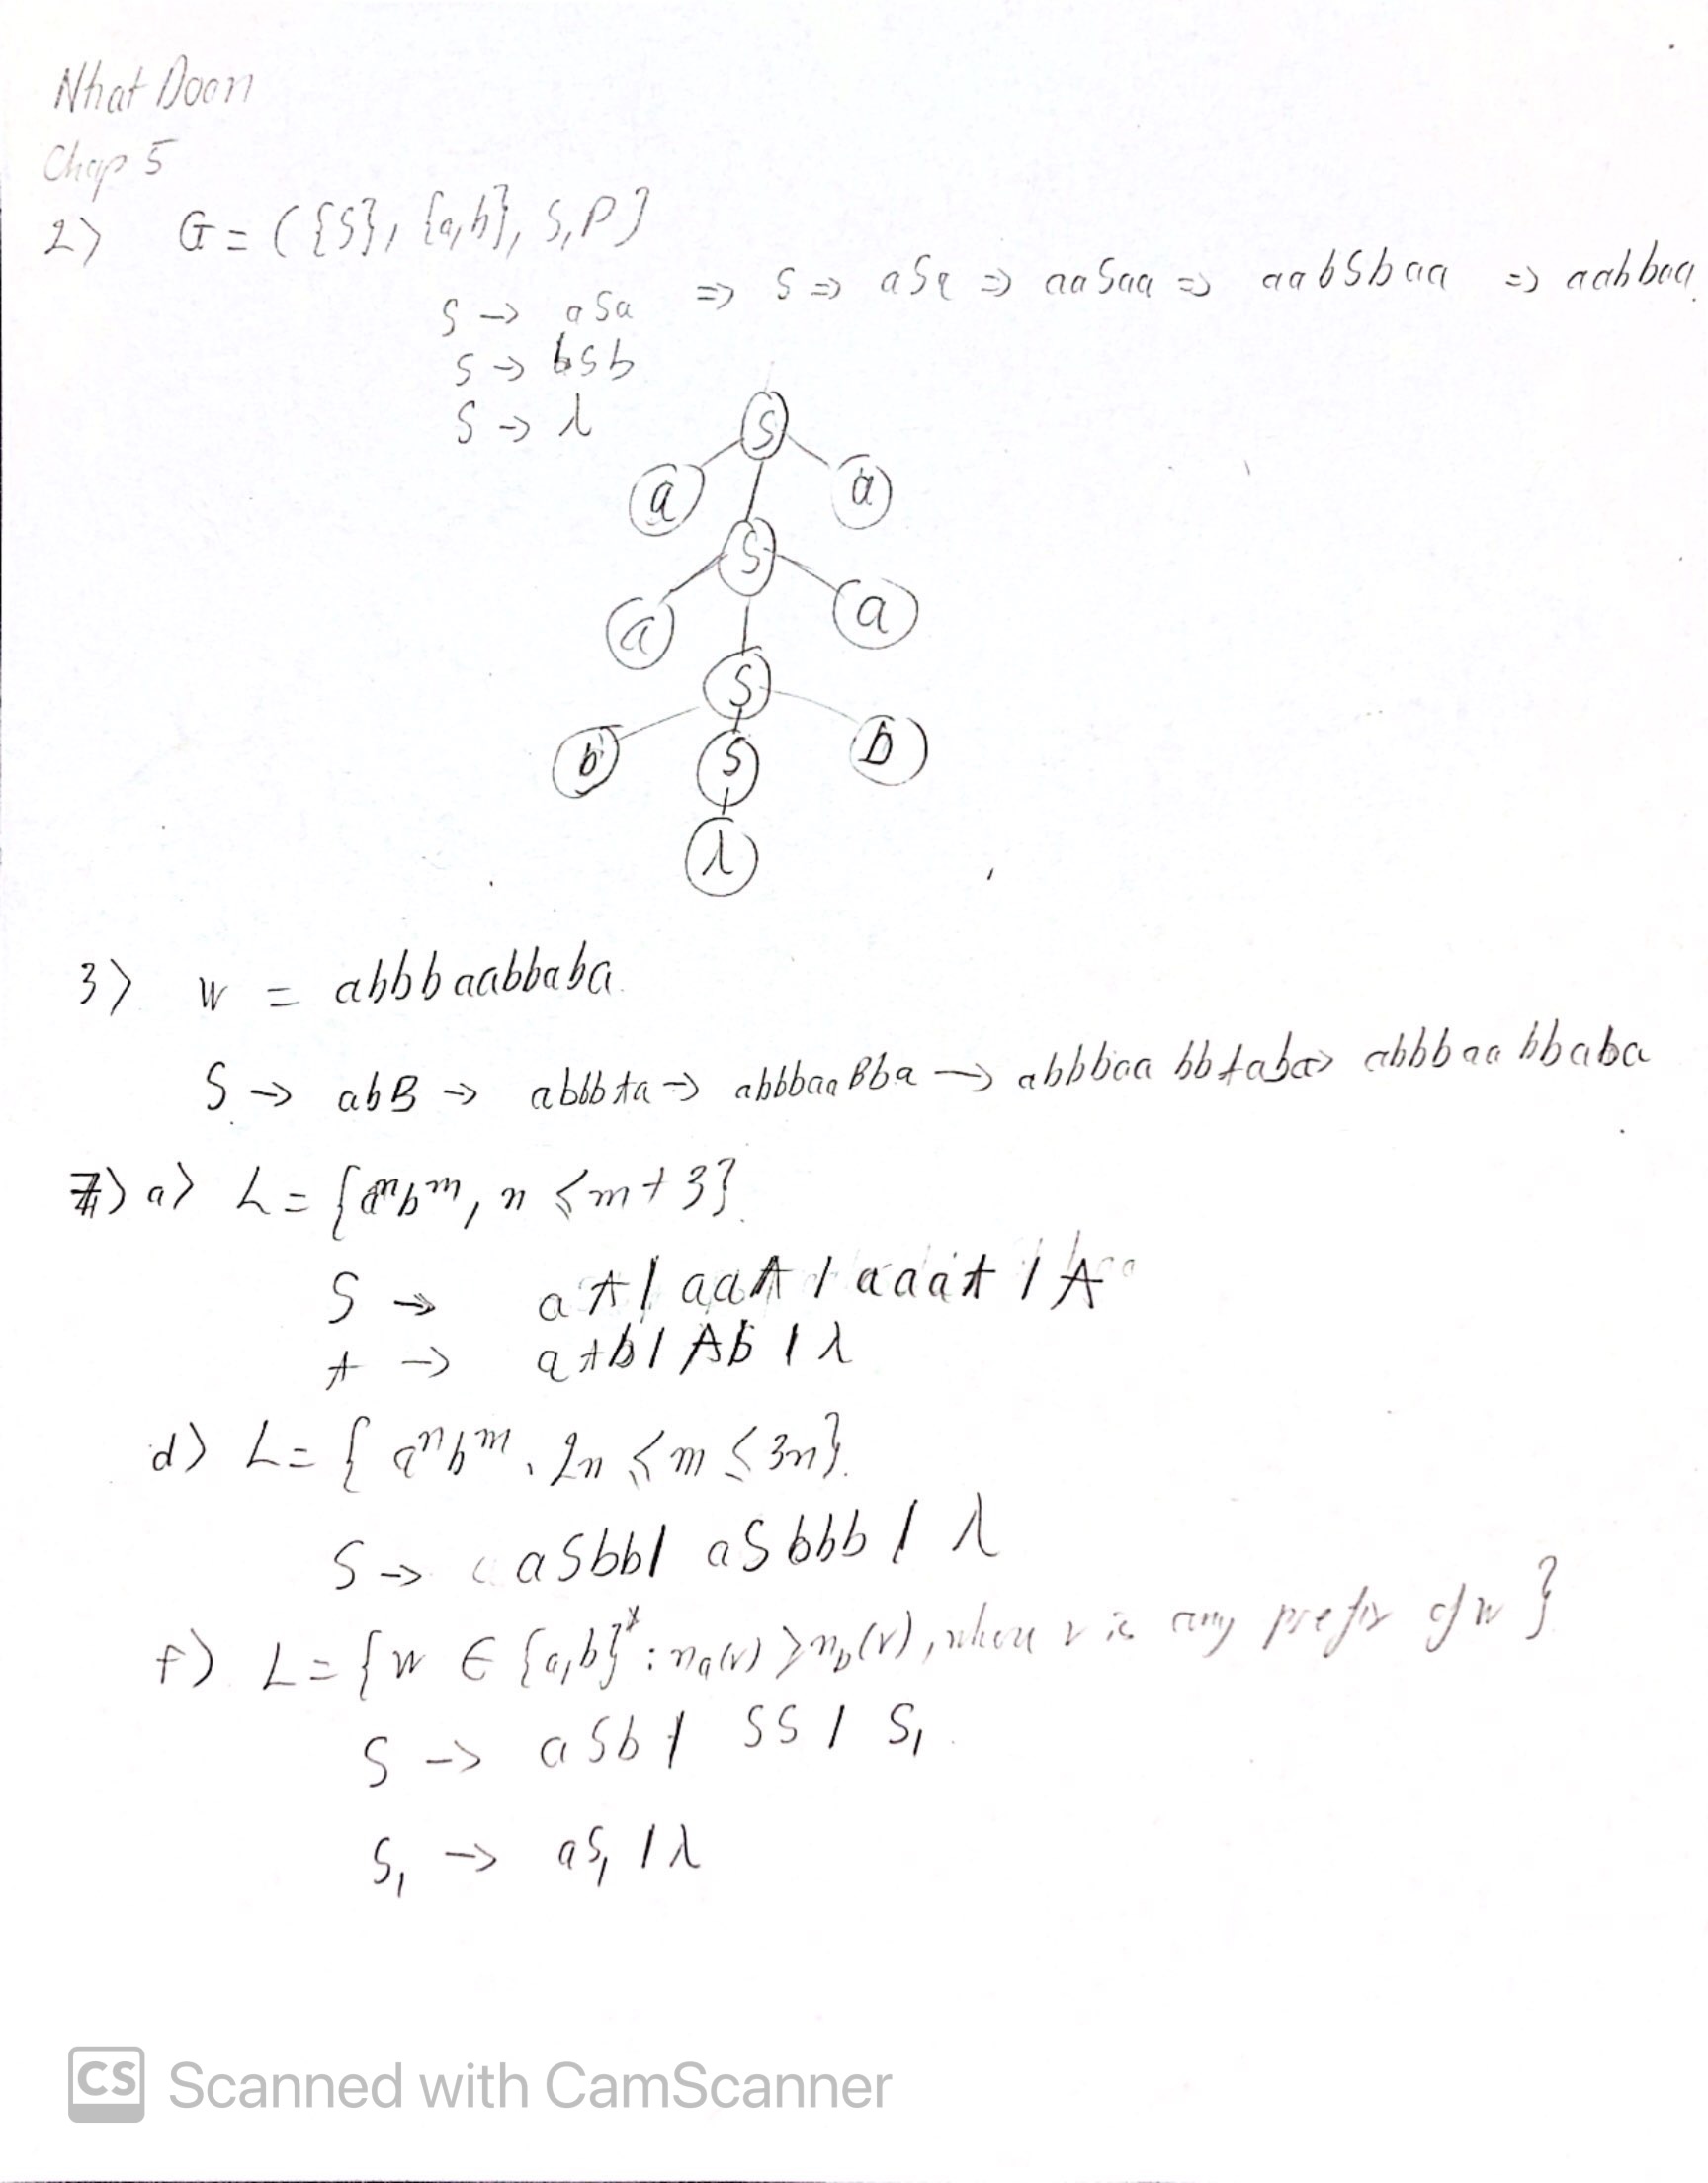 Nhat Doan
Chap 5
2) G = ({S}, {a,b}, S, P}
S → aSa ⇒ S ⇒ aSa ⇒ aaSaa ⇒ aabSbaa ⇒ aabbaa
S → bSb
S → λ
S
a a
S
a a
S
b S b
λ
3) w = abbbaabbaba
S → abB → abbbAa → abbbaaBba → abbbaabbAaba → abbbaabbaba
7) a) L = {aⁿbᵐ, n ≤ m + 3}
S → aA | aaA | aaaA | A
A → aAb | Ab | λ
d) L = {aⁿbᵐ, 2n ≤ m ≤ 3n}
S → aSbb | aSbbb | λ
f) L = {w ∈ {a,b}* : nₐ(v) ≥ n_b(v), where v is any prefix of w}
S → aSb | SS | S₁
S₁ → aS₁ | λ
CS Scanned with CamScanner